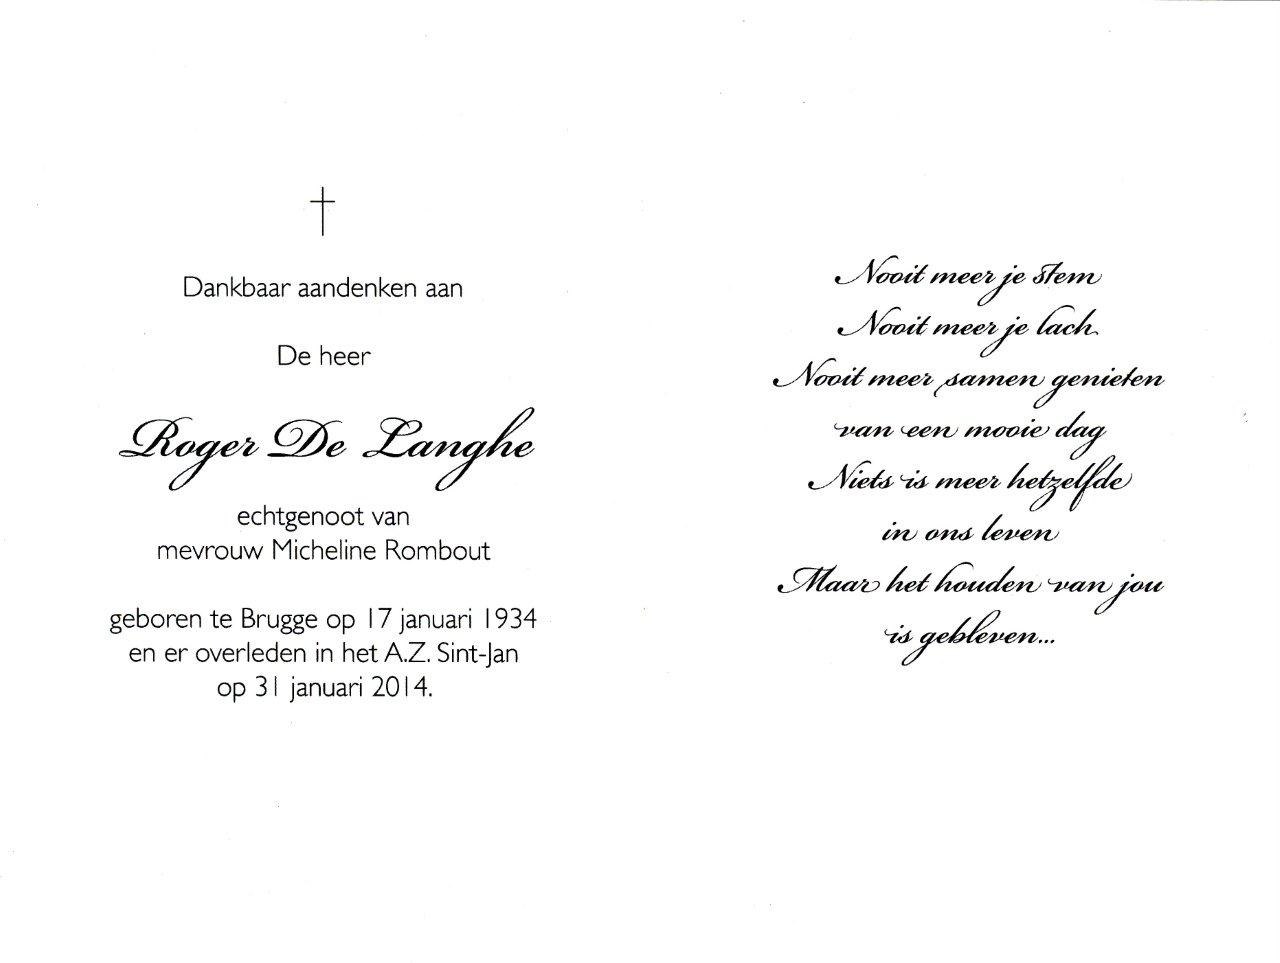 Dankbaar aandenken aan
De heer
Roger De Langhe
echtgenoot van
mevrouw Micheline Rombout
geboren te Brugge op 17 januari 1934
en er overleden in het A.Z. Sint-Jan
op 31 januari 2014.
Nooit meer je stem
Nooit meer je lach
Nooit meer samen genieten
van een mooie dag
Niets is meer hetzelfde
in ons leven
Maar het houden van jou
is gebleven...